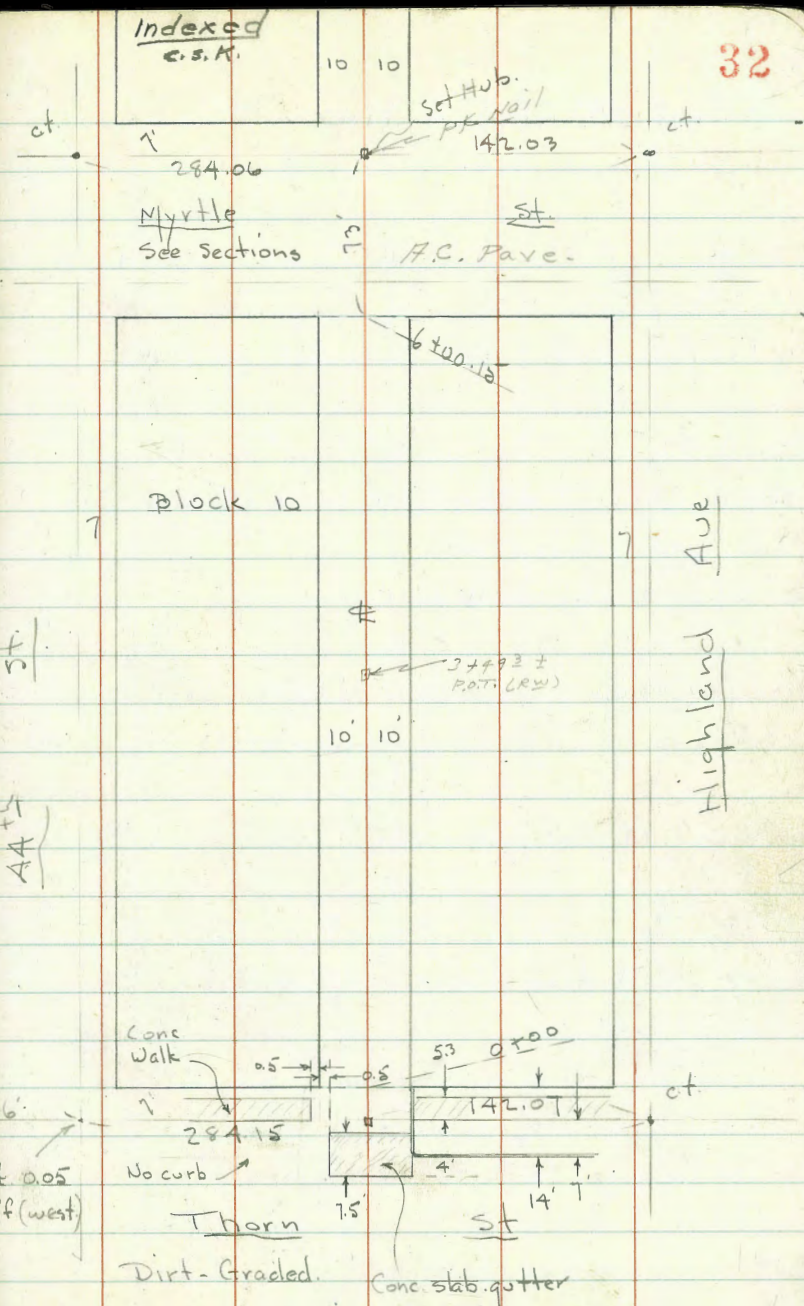 Indexed
C.S.K.
10 10
32
Set Hub.
PK Nail
ct.
ct.
7'
284.06
142.03
Myrtle St.
See Sections
73'
A.C. Pave.
6+00.15
Block 10
7
7
Highland Ave
44th St.
3+49 3 ±
P.O.T. (RW)
10' 10'
Conc
Walk
0.5
0.5
5.3
0+00
ct.
6'
7'
142.07
284.15
0.05
(west)
No curb
4'
7.5'
14'
7'
Thorn St
Dirt-Graded.
Conc. slab gutter